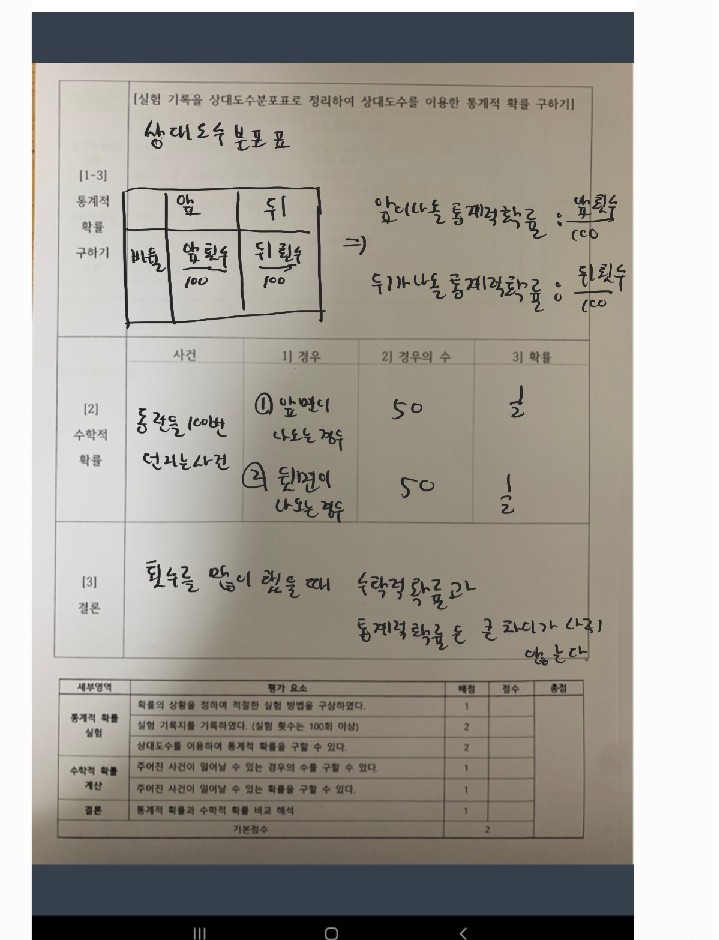 [실험 기록을 상대도수분포표로 정리하여 상대도수를 이용한 통계적 확률 구하기]
상대도수분포표
[1-3]
통계적
확률
구하기
앞 뒤
비율 앞 횟수/100 뒤 횟수/100
⇒ 앞이나올 통계적확률 : 앞 횟수/100
뒤가나올 통계적확률 : 뒤 횟수/100
사건 1] 경우 2] 경우의 수 3] 확률
[2]
수학적
확률
동전을 100번
던지는 사건
① 앞면이
나오는 경우
50
1/2
② 뒷면이
나오는 경우
50
1/2
[3]
결론
횟수를 많이 했을 때 수학적 확률과
통계적 확률은 큰 차이가 나지
않는다.
세부영역 평가 요소 배점 점수 총점
통계적 확률
실험
확률의 상황을 정하여 적절한 실험 방법을 구상하였다. 1
실험 기록지를 기록하였다. (실험 횟수는 100회 이상) 2
상대도수를 이용하여 통계적 확률을 구할 수 있다. 2
수학적 확률
계산
주어진 사건이 일어날 수 있는 경우의 수를 구할 수 있다. 1
주어진 사건이 일어날 수 있는 확률을 구할 수 있다. 1
결론 통계적 확률과 수학적 확률 비교 해석 1
기본점수 2